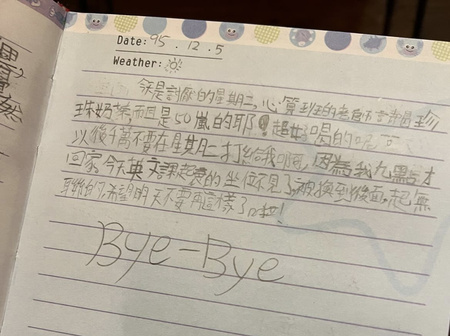 Date: 95.12.5
Weather:
今是討厭的星期二,心算班的老師請喝珍
珠奶茶,而且是50嵐的耶!超好喝的
以後千萬不要在星期二打給我,因為我九點才
回家,今天英文課起的坐位不見了,被換到後面,起無
聊的,希望明天不要再這樣了啦!
Bye-Bye